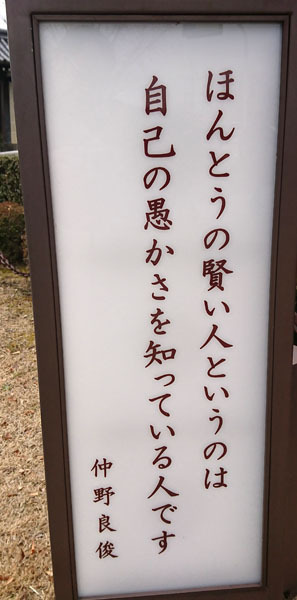 ほんとうの賢い人というのは
自己の愚かさを知っている人です
仲野良俊